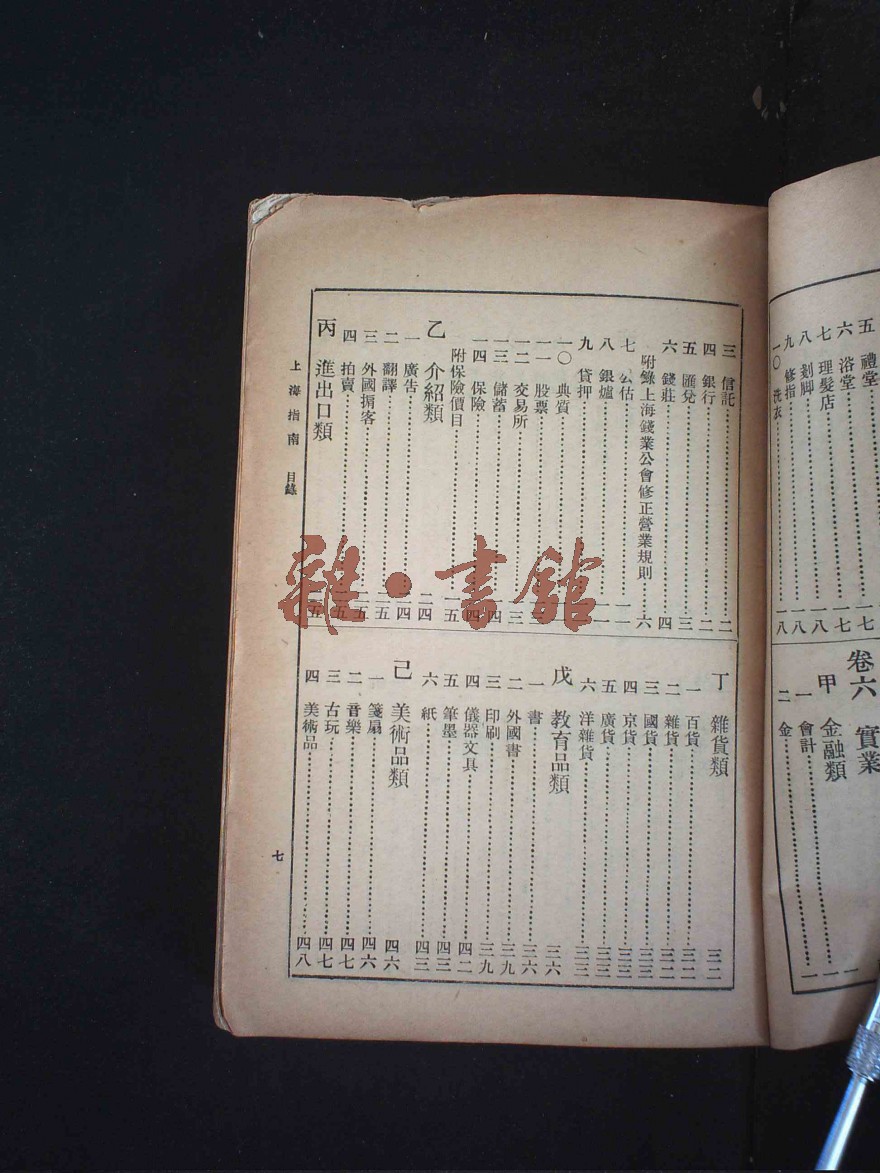 五 禮堂
六 浴堂 一七
七 理髮店 一七
八 剗脚 一八
九 修指 一八
一〇 洗衣 一八
卷六 實業
甲 金融類 一
一 會計 一
二 金 一
三 信託 二
四 銀行 二
五 匯兌 三
六 錢莊 四
附錄上海錢業公會修正營業規則 六
七 公估 一一
八 銀爐 一一
九 貸押
一〇 典質
一一 股票
一二 交易所
一三 儲蓄
一四 保險
附保險價目 一五
乙 介紹類 二四
一 廣告
二 翻譯 二五
三 外國掮客 二五
四 拍賣
丙 進出口類
丁 雜貨類 三二
一 百貨 三二
二 雜貨 三二
三 國貨 三三
四 京貨 三三
五 廣貨 三三
六 洋雜貨 三三
戊 教育品類 三六
一 書 三六
二 外國書 三九
三 印刷 三九
四 儀器文具 四二
五 筆墨 四三
六 紙 四三
己 美術品類 四六
一 箋扇 四六
二 音樂 四七
三 古玩 四七
四 美術品 四八
上海指南 目錄
七
雜·書館